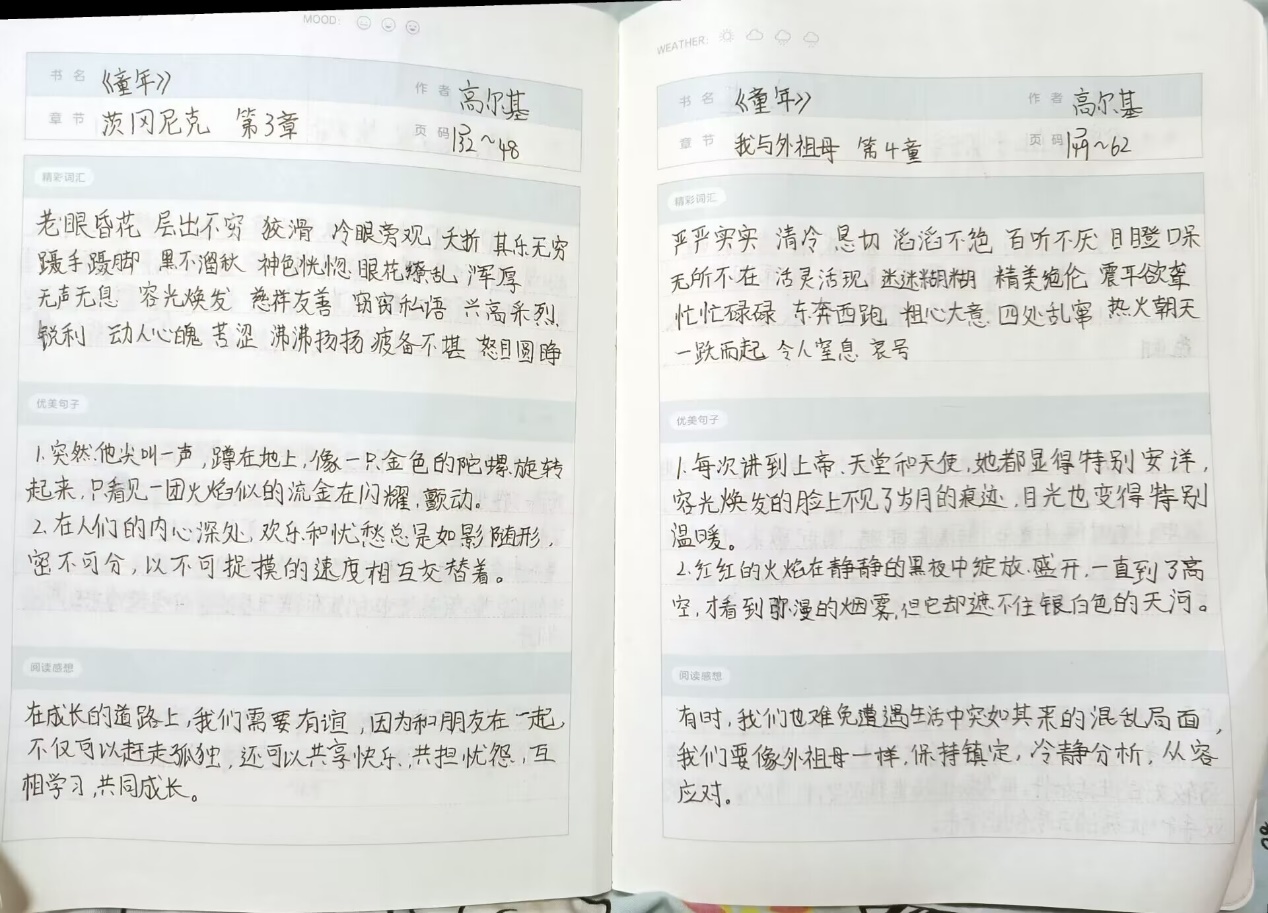 MOOD:
书名 《童年》 作者 高尔基
章节 茨冈尼克 第3章 页码 P32~48
精彩词汇
老眼昏花 层出不穷 狡滑 冷眼旁观 夭折 其乐无穷
蹑手蹑脚 黑不溜秋 神色恍惚 眼花缭乱 浑厚
无声无息 容光焕发 慈祥友善 窃窃私语 兴高采烈
锐利 动人心魄 苦涩 沸沸扬扬 疲备不堪 怒目圆睁
优美句子
1.突然他尖叫一声,蹲在地上,像一只金色的陀螺旋转
起来,只看见一团火焰似的流金在闪耀,颤动。
2.在人们的内心深处,欢乐和忧愁总是如影随形,
密不可分,以不可捉摸的速度相互交替着。
阅读感想
在成长的道路上,我们需要有谊,因为和朋友在一起,
不仅可以赶走孤独,还可以共享快乐,共担忧怨,互
相学习,共同成长。
WEATHER:
书名 《童年》 作者 高尔基
章节 我与外祖母 第4童 页码 P49~62
精彩词汇
严严实实 清冷 恳切 滔滔不绝 百听不厌 目瞪口呆
无所不在 活灵活现 迷迷糊糊 精美绝伦 震耳欲聋
忙忙碌碌 东奔西跑 粗心大意 四处乱窜 热火朝天
一跃而起 令人窒息 哀号
优美句子
1.每次讲到上帝、天堂和天使,她都显得特别安详,
容光焕发的脸上不见了岁月的痕迹,目光也变得特别
温暖。
2.红红的火焰在静静的黑夜中绽放、盛开,一直到了高
空,才看到弥漫的烟雾,但它却遮不住银白色的天河。
阅读感想
有时,我们也难免遭遇生活中突如其来的混乱局面,
我们要像外祖母一样,保持镇定,冷静分析,从容
应对。